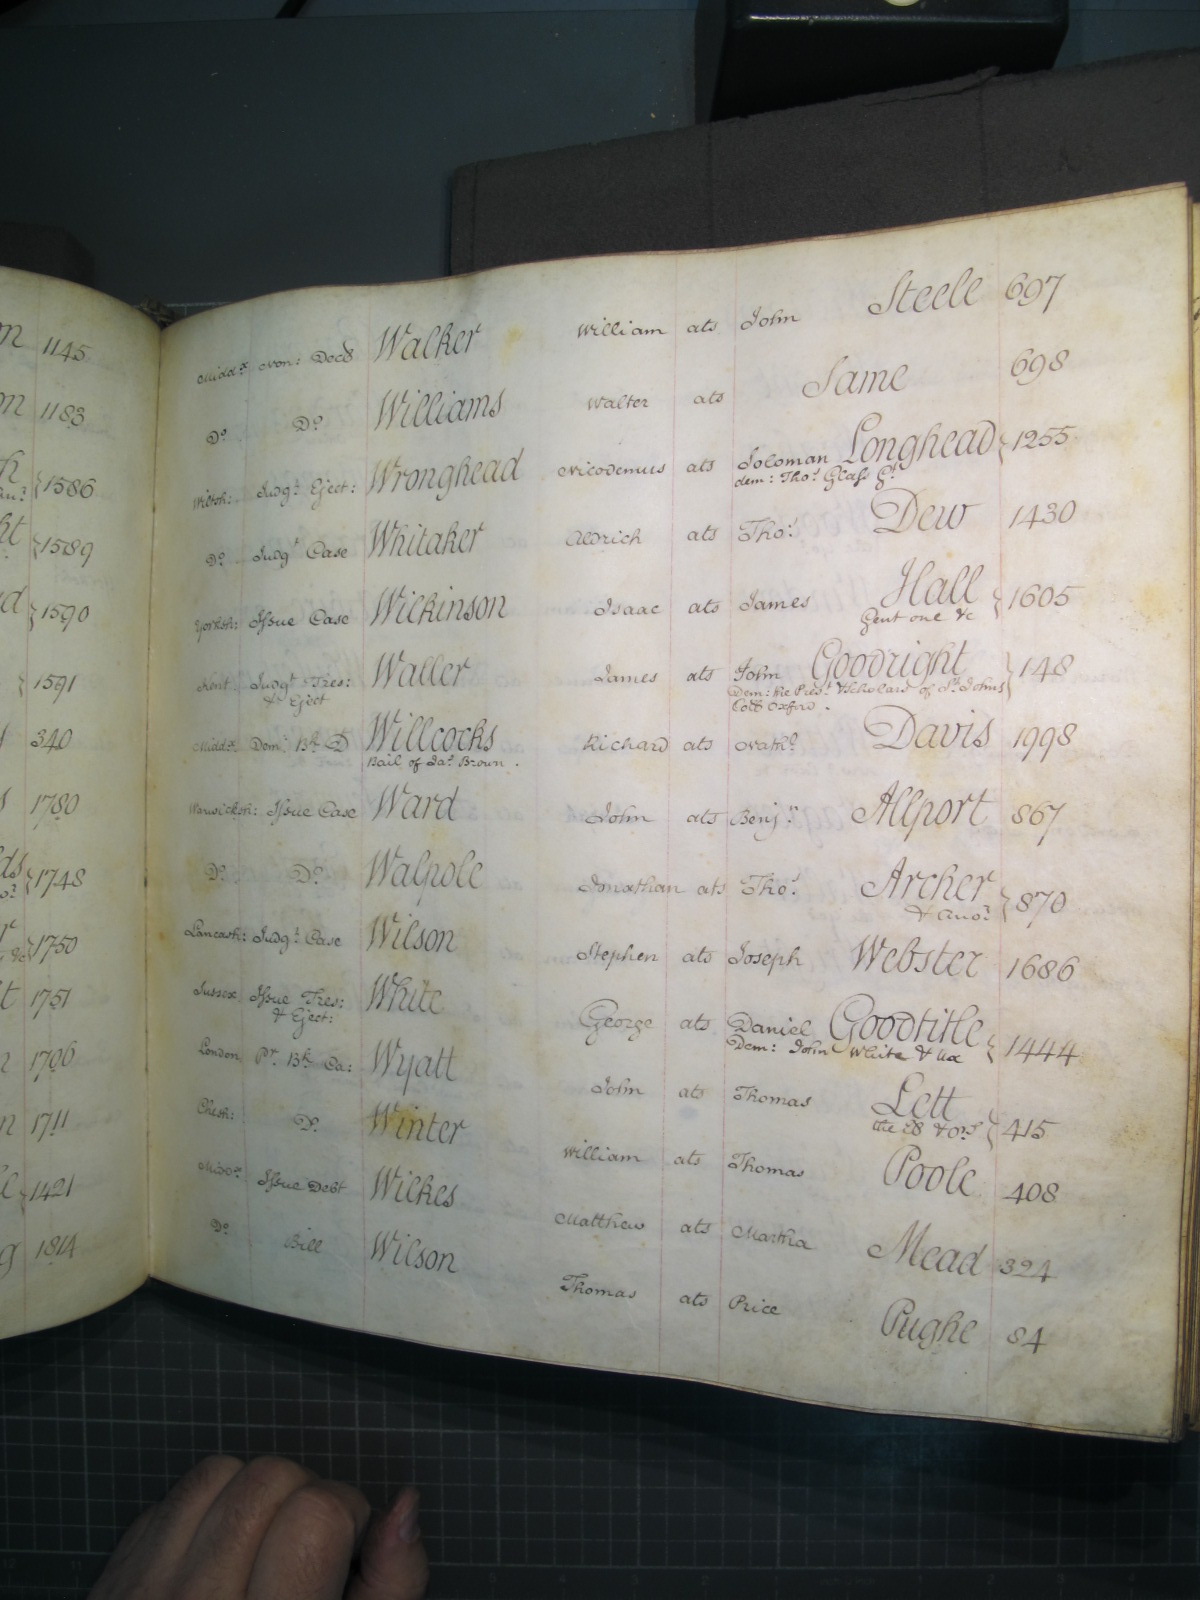 Midd.x Non: Dock Walker William ats John Steele 697
D.o D.o Williams Walter ats Same 698
Wiltsh: Judg.t Eject: Wronghead Nicodemus ats Soloman Longhead 1255
dem: Tho.s Glass G.t
D.o Judg.t Case Whitaker Aldrich ats Tho.s Dew 1430
Yorksh: Issue Case Wilkinson Isaac ats James Hall 1605
Gent one &c
Kent Judg.t Tres: Waller James ats John Goodright 148
& Eject Dem: the Pres.t & Scholars of S.t Johns
Coll Oxford.
Midd.x Dem.r B.k D Willcocks Richard ats Nath.l Davis 1998
Bail of Ja.s Brown.
Warwicksh: Issue Case Ward John ats Benj.n Allport 867
D.o D.o Walpole Jonathan ats Tho.s Archer 870
& ano.r
Lancash: Judg.t Case Wilson Stephen ats Joseph Webster 1686
Sussex Issue Tres: White George ats Daniel Goodtitle 1444
& Eject: Dem: John White & Ux
London P.r B.k Ca: Wyatt John ats Thomas Lett 415
the & o.rs
Chesh: D.o Winter William ats Thomas Poole 408
Midd.x Issue Debt Wilkes Matthew ats Martha Mead 324
D.o Bill Wilson Thomas ats Price Pughe 84
1145
1183
1586
1589
1590
1591
340
1780
1748
1750
1751
1706
1711
1421
1814